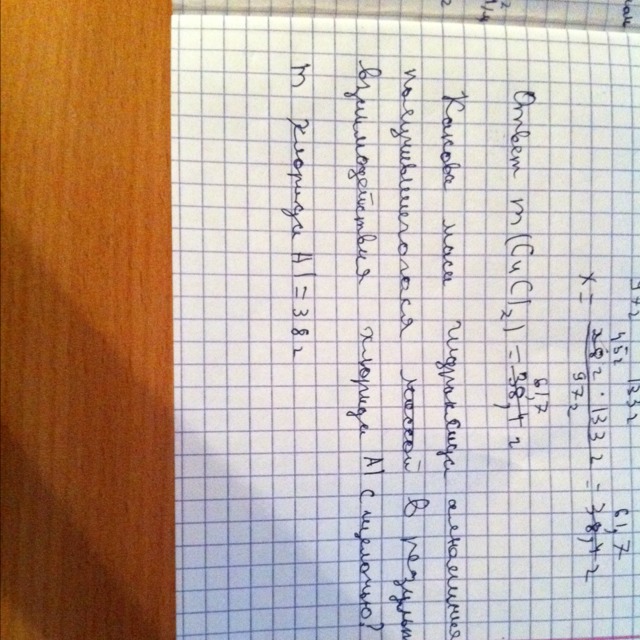 X = 45г 38г · 133г / 97г = 61,7 38,4 г
Ответ m(CuCl₂) = 61,7 38,4 г
Какова масса гидроксида алюминия
получившегося массой в резуль
взаимодействия хлорида Al с щелочью?
m хлорида Al = 38 г